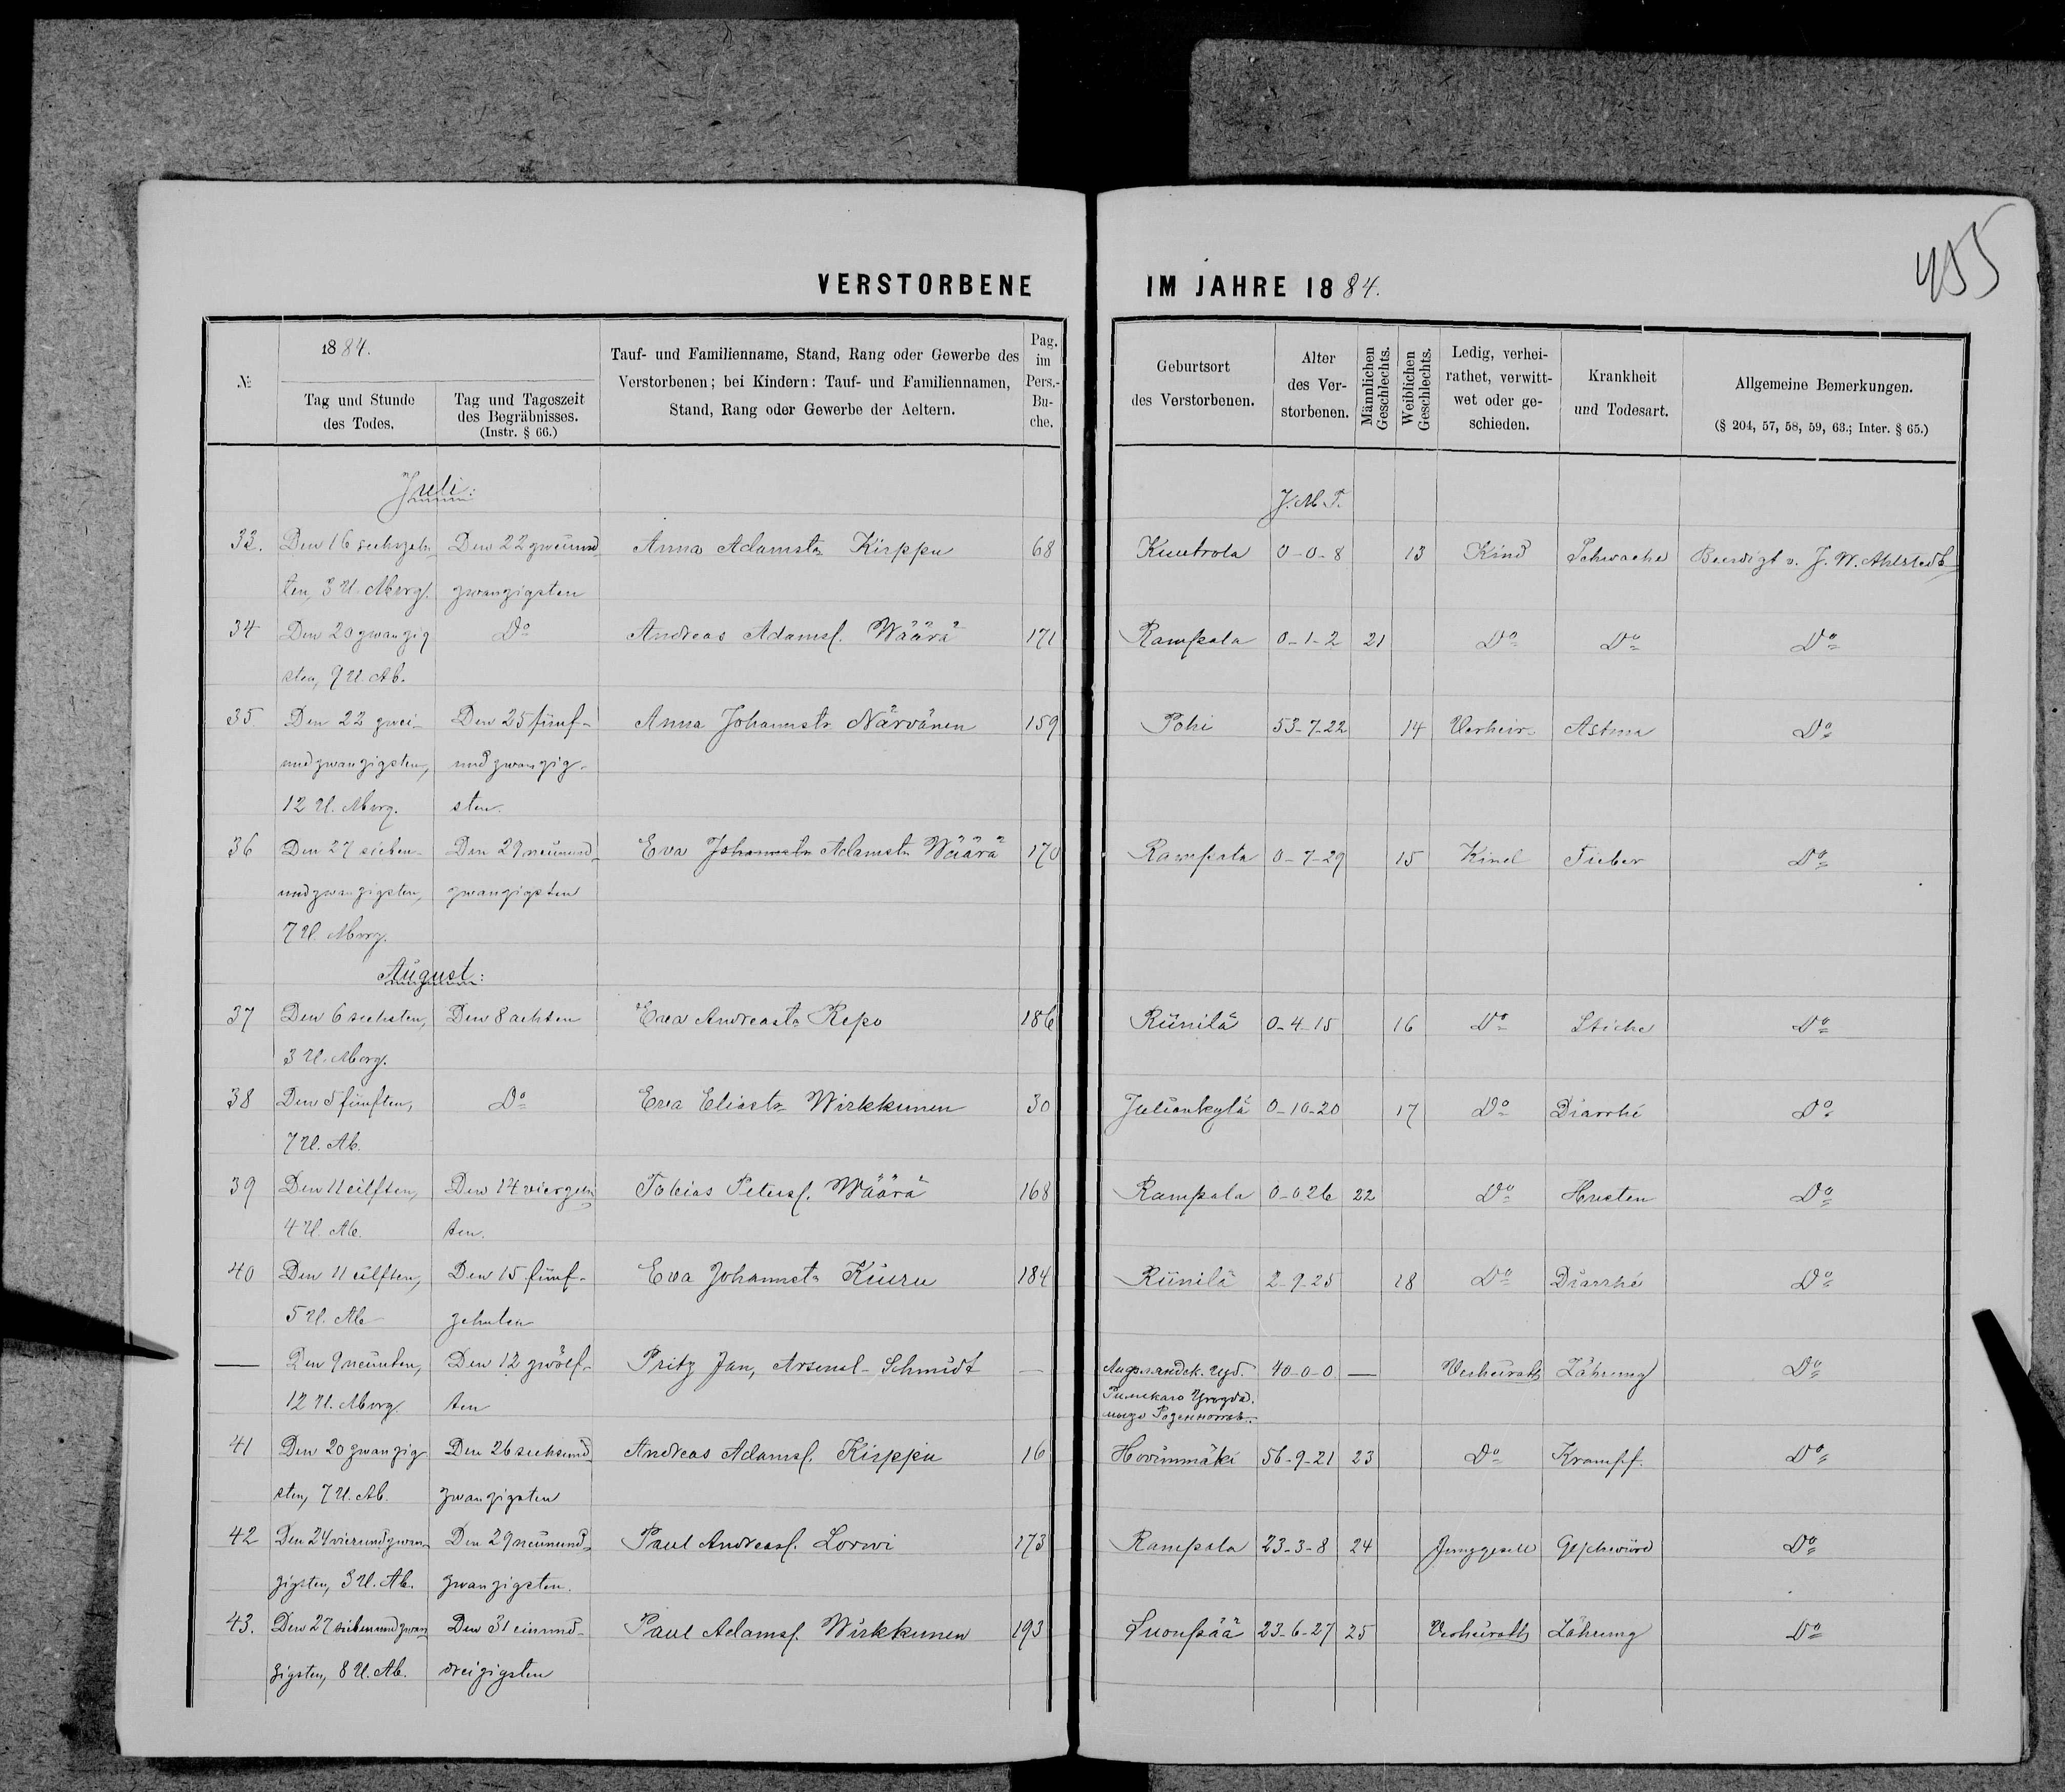 455
VERSTORBENE IM JAHRE 1884.
№
1884.
Tag und Stunde des Todes.
Tag und Tageszeit des Begräbnisses. (Instr. § 66.)
Tauf- und Familienname, Stand, Rang oder Gewerbe des Verstorbenen; bei Kindern: Tauf- und Familiennamen, Stand, Rang oder Gewerbe der Aeltern.
Pag. im Pers.-Buche.
Geburtsort des Verstorbenen.
Alter des Verstorbenen.
Männlichen Geschlechts.
Weiblichen Geschlechts.
Ledig, verheirathet, verwittwet oder geschieden.
Krankheit und Todesart.
Allgemeine Bemerkungen.
(§ 204, 57, 58, 59, 63.; Inter. § 65.)
Juli:
J. M. T.
33. Den 16 sechszehn- Den 22 zweiund Anna Adamstr Kirppu 68 Kuutrola 0-0-8 13 Kind Schwache Beerdigt v. J. W. Ahlstedt
ten, 3 U. Morg. zwanzigsten
34 Den 20 zwanzig Do Andreas Adamss. Wäärä 171 Rampala 0-1-2 21 Do Do Do
sten, 9 U. Ab.
35 Den 22 zwei- Den 25 fünf- Anna Johannstr Närvänen 159 Pohi 53-7-22 14 Verheir. Astma Do
undzwanzigsten, undzwanzig-
12 U. Morg. sten.
36 Den 27 sieben- Den 29 neunund- Eva Johannstr Adamstr Wäärä 170 Rampala 0-7-29 15 Kind Fieber Do
undzwanzigsten, zwanzigsten
7 U. Morg.
August:
37 Den 6 sechsten, Den 8 achten Eva Andreastr Repo 186 Riinilä 0-4-15 16 Do Stiche Do
3 U. Morg.
38 Den 5 fünften, Do Eva Eliastr Wirkkunen 30 Juliankylä 0-10-20 17 Do Diarrhé Do
7 U. Ab.
39 Den 11 eilften, Den 14 vierzehn Tobias Peterss. Wäärä 168 Rampala 0-0 26 22 Do Husten Do
4 U. Ab. ten.
40 Den 11 eilften, Den 15 fünf- Eva Johannstr Kiuru 184 Riinilä 2-9-25 18 Do Diarrhé Do
5 U. Ab zehnten
— Den 9 neunten, Den 12 zwölf- Pritz Jan, Arsenal-Schmidt — 40-0-0 — Verheirath Zährung Do
12 U. Morg. ten
41 Den 20 zwanzig Den 26 sechsund Andreas Adamss. Kirppu 16 Hovinmäki 56-9-21 23 Do Krampf. Do
sten, 7 U. Ab. zwanzigsten
42 Den 24 vierundzwan- Den 29 neunund- Paul Andreass. Lorvi 173 Rampala 23-3-8 24 Junggesell Geschwürd Do
zigsten, 3 U. Ab. zwanzigsten.
43. Den 27 siebenundzwan Den 31 einund- Paul Adamss. Wirkkunen 193 Suonpää 23-6-27 25 Verheirath Zährung Do
zigsten, 8 U. Ab. dreizigsten